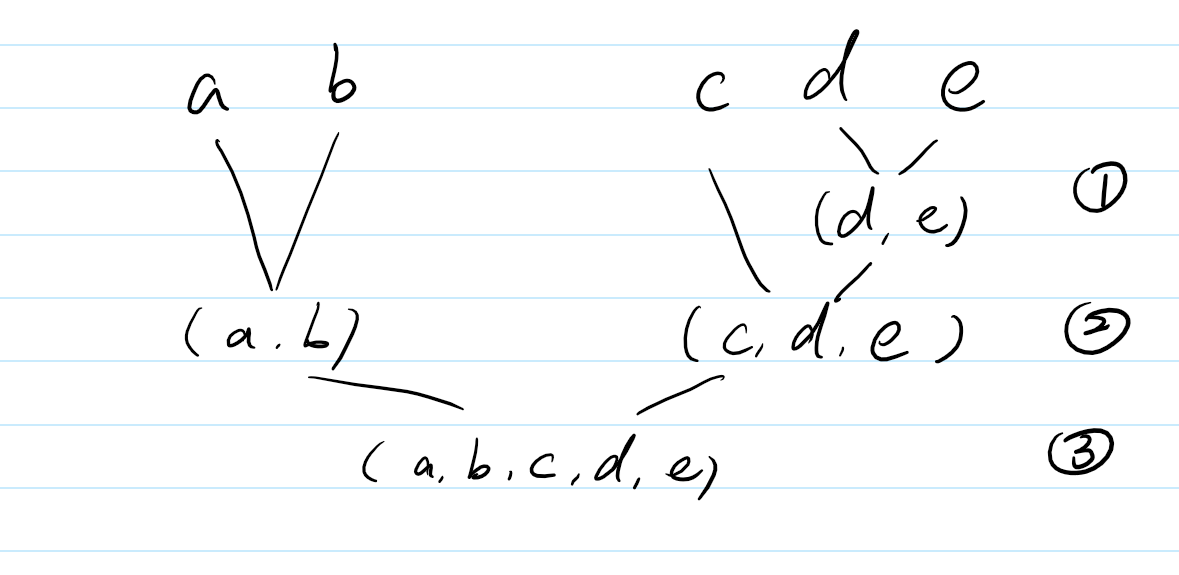 a b c d e
(d, e) ①
(a. b) (c, d, e) ②
(a, b, c, d, e) ③